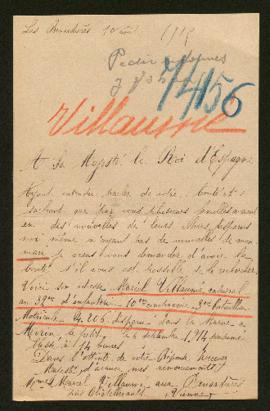 Les 10 1915
Pedir informes
y 74156
Villaumé
A Sa Majesté le Roi d'Espagne
Ayant entendu parler de votre bonté et
sachant que par vous plusieurs familles avaient
eu des nouvelles de leurs chers disparus
moi même n'ayant pas de nouvelles de mon
mari je viens vous demander d'avoir la
bonté s'il vous est possible de le rechercher
Voici son adresse Marcel Villaumé caporal
au 39me d'infanterie 10me compagnie 3me bataillon
Matricule 4206 disparu dans la Marne à
le petit le 6 septembre 1914
à 14 heures
Dans l'attente de votre Réponse
Majesté d'avance mes remerciements
Mme Marcel Villaumé aux
Vienne